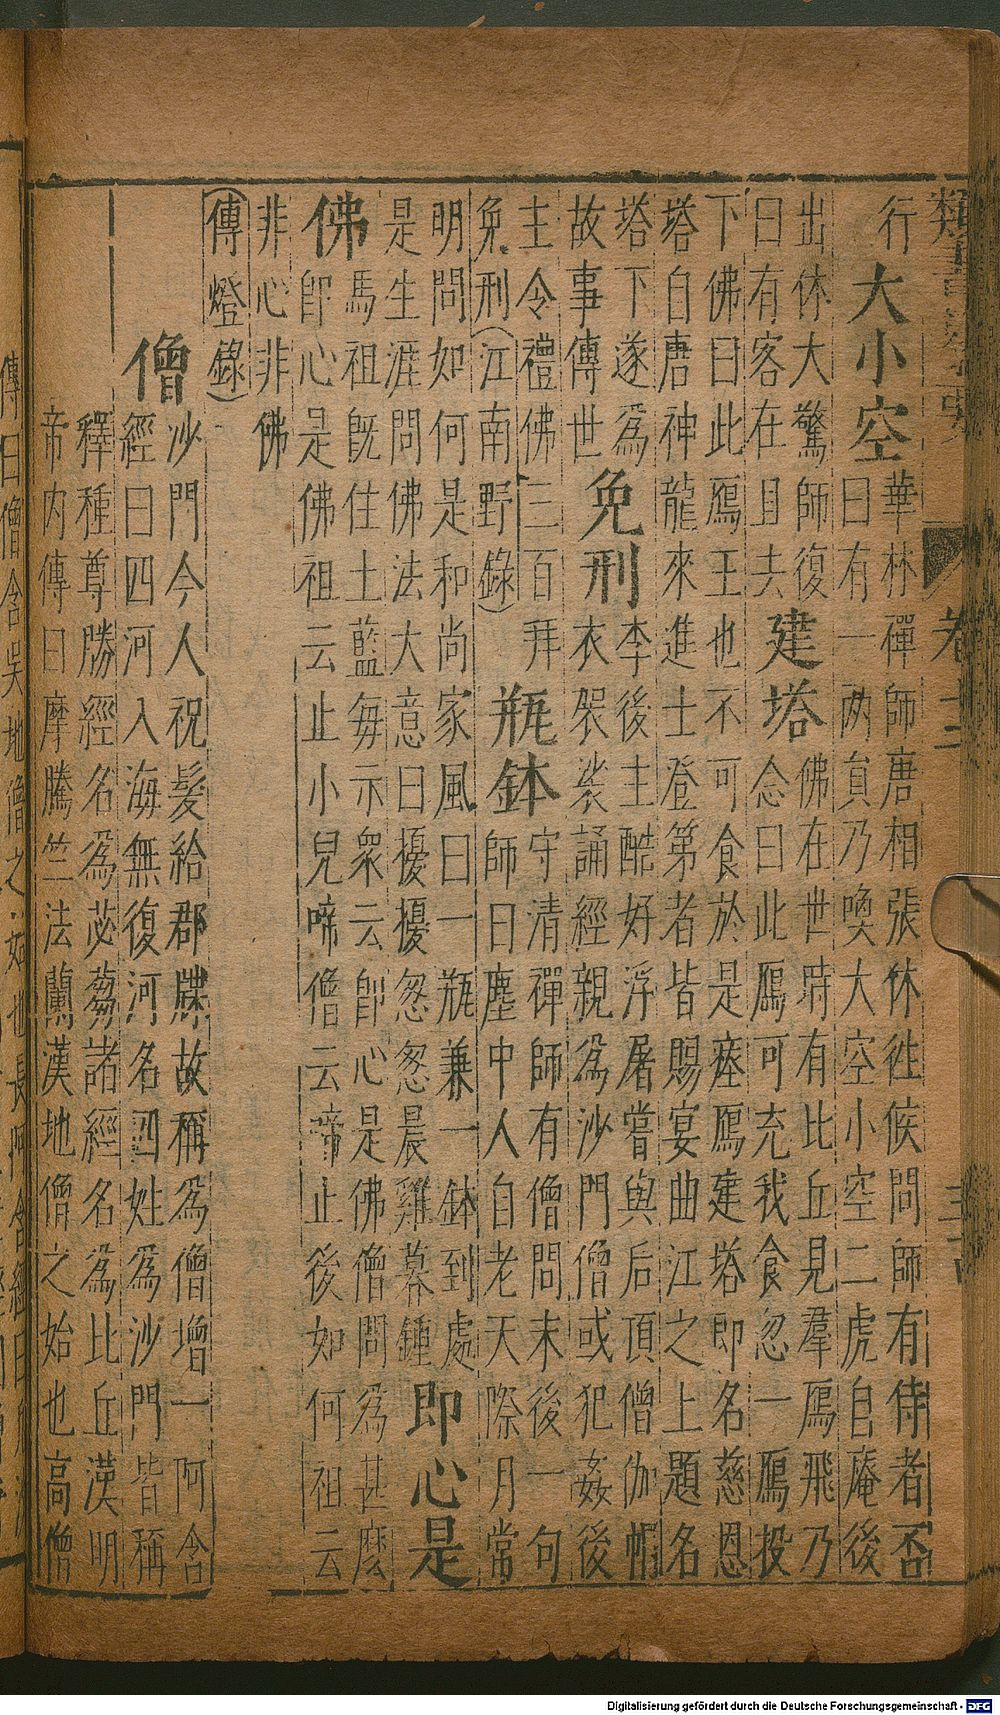 類書纂要 卷十三
行
大小空
華林禪師唐相張休徃候問師有侍者否
曰有一两貟乃喚大空小空二虎自庵後
出休大驚師復
曰有客在且去
建塔
佛在世時有比丘見羣鴈飛乃
念曰此鴈可充我食忽一鴈投
下佛曰此鴈王也不可食於是瘞鴈建塔即名慈恩
塔自唐神龍來進士登第者皆賜宴曲江之上題名
塔下遂爲
故事傳世
免刑
李後主酷好浮屠嘗與后頂僧伽帽
衣袈裟誦經親爲沙門僧或犯姦後
主令禮佛三百拜
免刑(江南野錄)
瓶鉢
守清禪師有僧問末後一句
師曰塵中人自老天際月常
明問如何是和尚家風曰一瓶兼一鉢到處
是生涯問佛法大意曰擾擾怱怱晨雞暮鍾
即心是
佛
馬祖旣住土藍每示衆云即心是佛僧問爲甚麽
即心是佛祖云止小兒啼僧云啼止後如何祖云
非心非佛
(傳燈錄)
僧
沙門今人祝髮給郡牒故稱爲僧增一阿含
經曰四河入海無復河名四姓爲沙門皆稱
釋種尊勝經名爲苾蒭諸經名爲比丘漢明
帝内傳曰摩騰竺法蘭漢地僧之始也高僧
傳曰僧含吳地僧之始也長阿含經曰
Digitalisierung gefördert durch die Deutsche Forschungsgemeinschaft - DFG